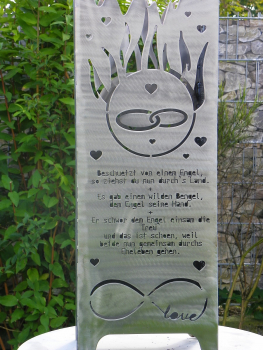 Beschuetzt von einem Engel,
so ziehst du nun durch's Land.
+
Es gab einen wilden Bengel,
dem Engel seine Hand.
+
Er schwor dem Engel einsam die
Treu
und das ist schoen, weil
beide nun gemeinsam durchs
Eheleben gehen.
love